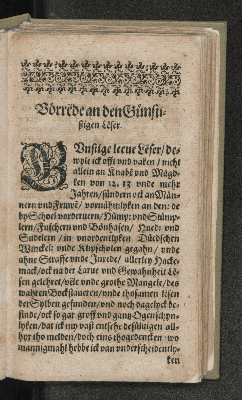 Vörrede an den Günsti-
stigen Leser.
GUnstige leeue Leser/ de-
wyle ick offt vnd vaken / nicht
allein an Knabē vnd Mägd-
ken von 12. 13 vnde mehr
Jahren / sündern ock an Män-
nern vnd Fruwē / vornähmlyken an den: de
by Schoel vorderuern / Hümp: vnd Stümp-
lern / Fuschern vnd Bönhasen /
Sudelern / in vnordentlyken Düedschen
Winckel vnde Klypscholen gegahn / vnde
ahne Straffe vnde Inrede / allerley Hacke-
mack / ock na der Larue vnd Gewahnheit Le-
sen gelehret / vele vnde grothe Mangele / des
wahren Bockstaueten / vnde thosamen lesen
der Sylben gefunden / vnd noch dagelyck be-
finde / ock so gar groff vnd gang Ogenschyn-
lyken / dat ick my vast entsehe desüluigen all-
hyr tho melden / doch eins thogedencken: wo
mannigmahl hebbe ick van vnderscheidently-
ken